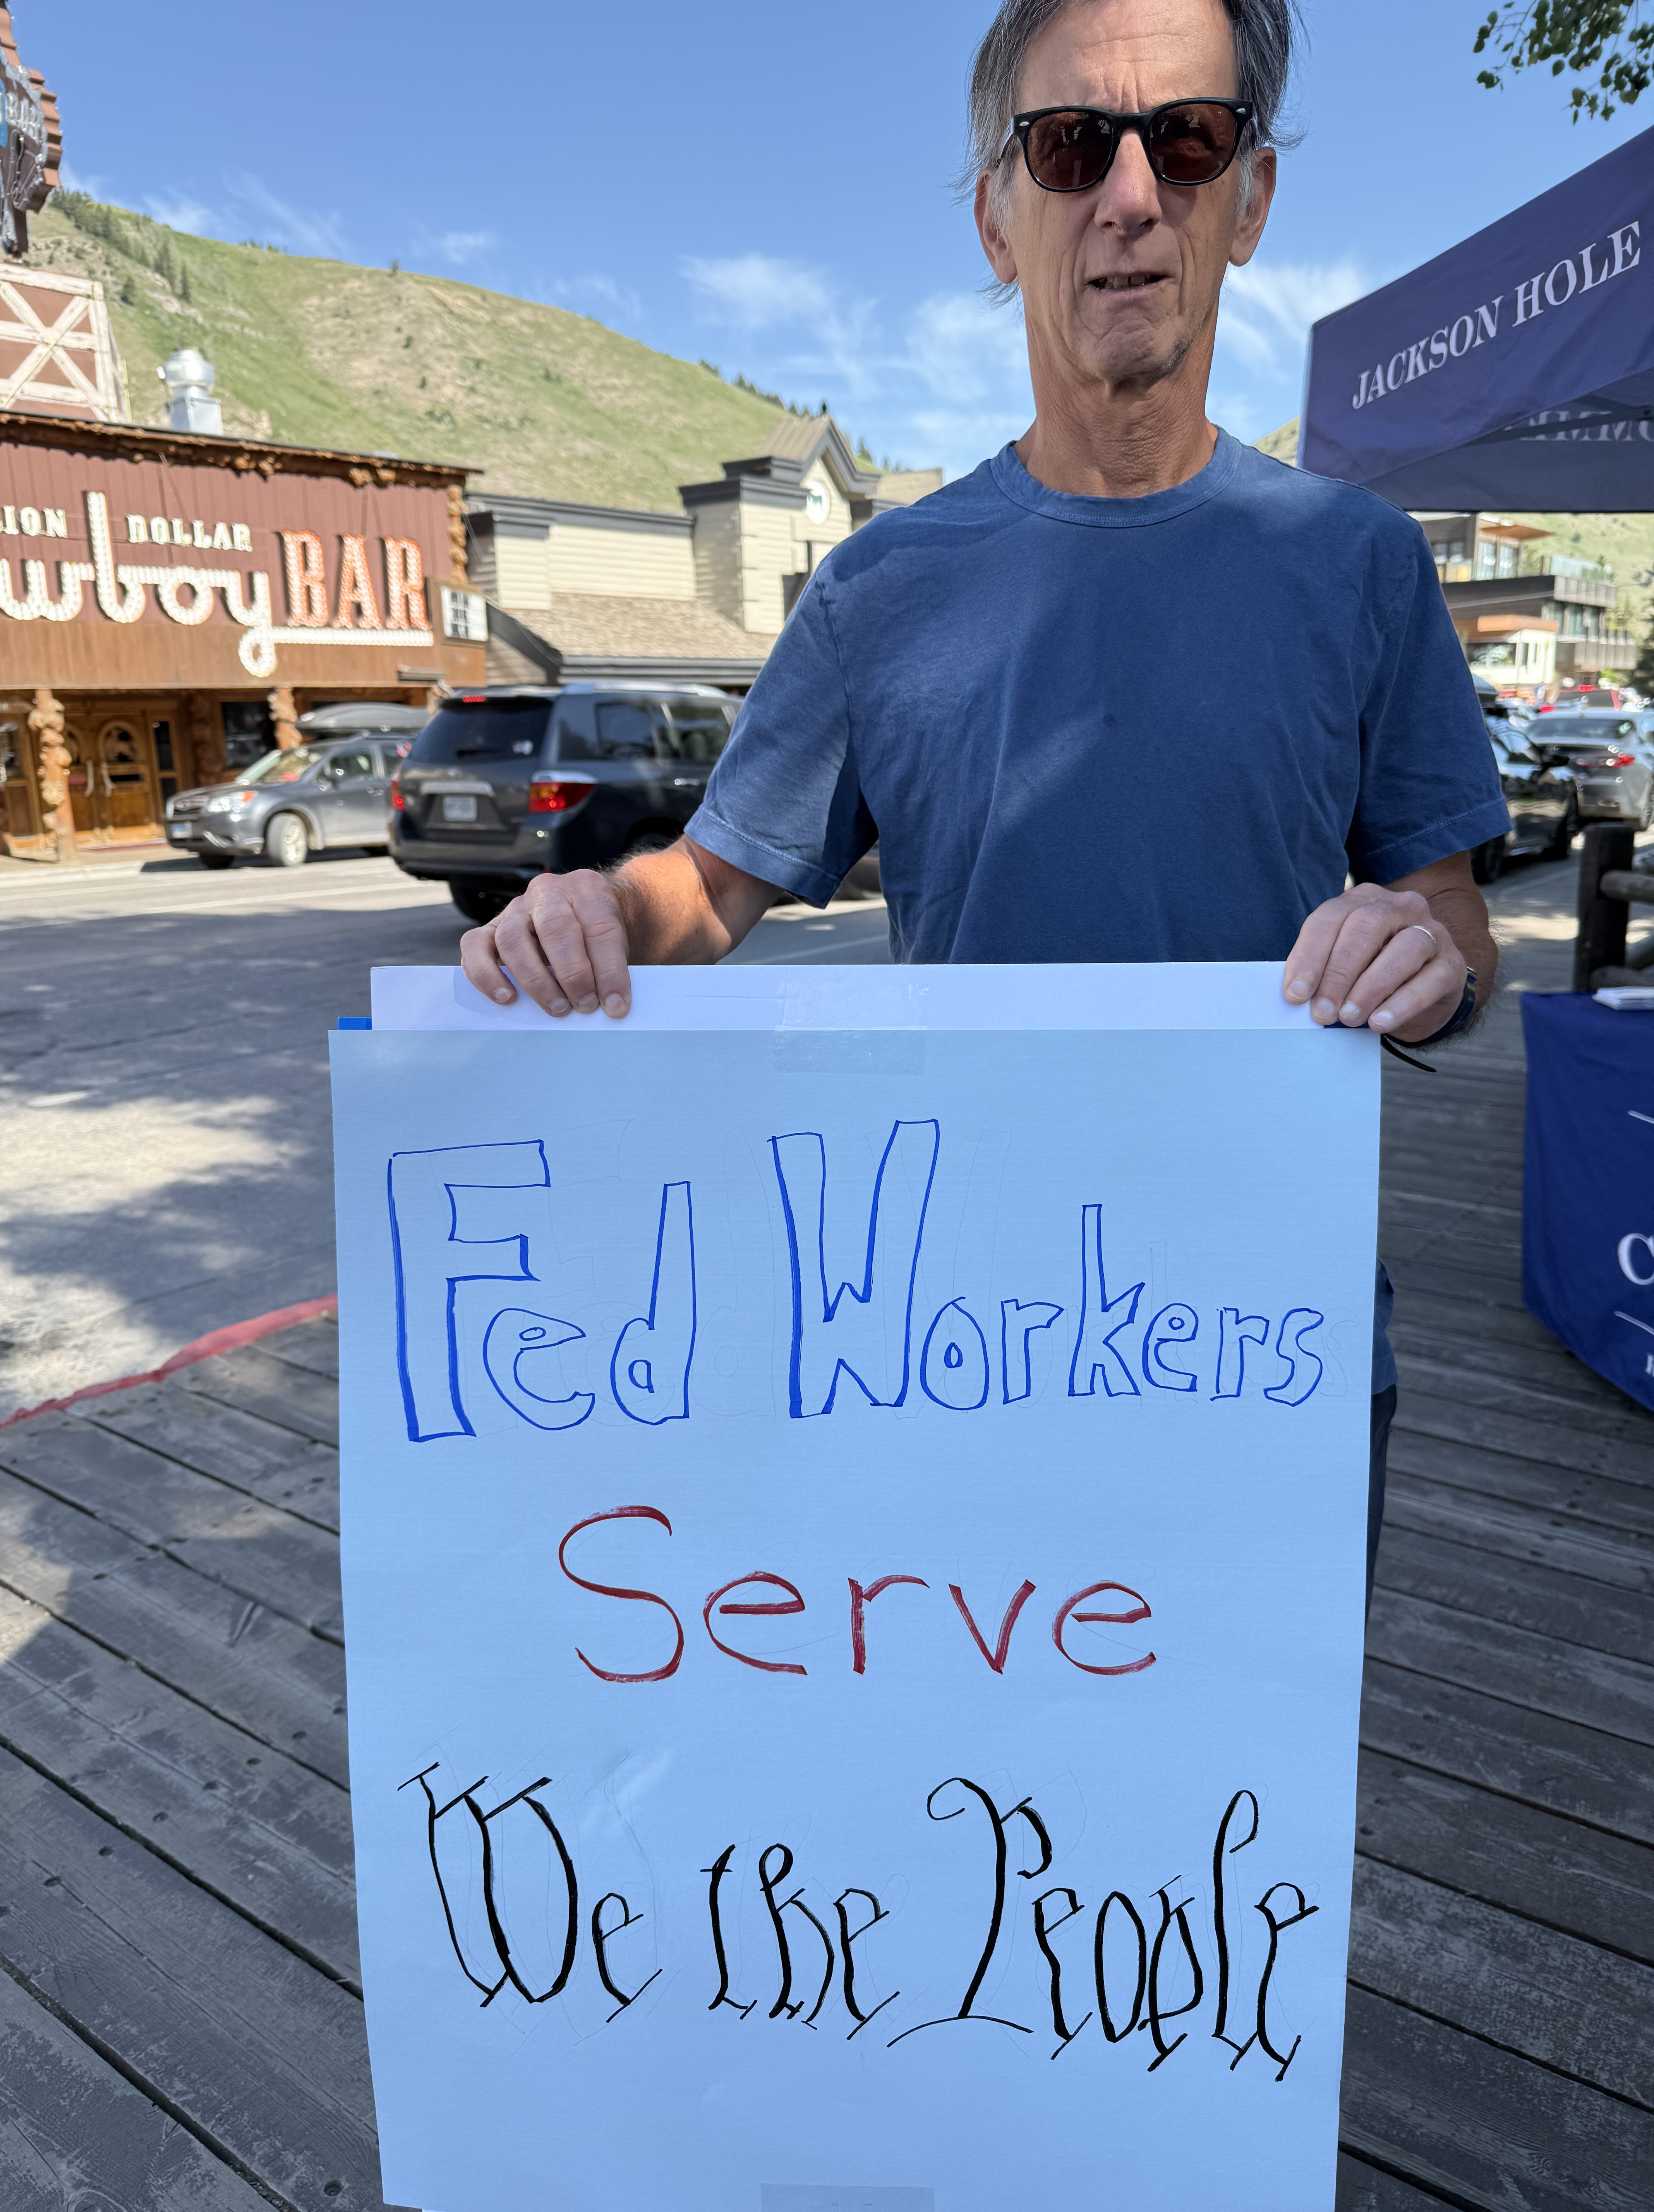 JACKSON HOLE
DOLLAR
BAR
Fed Workers
Serve
We the People